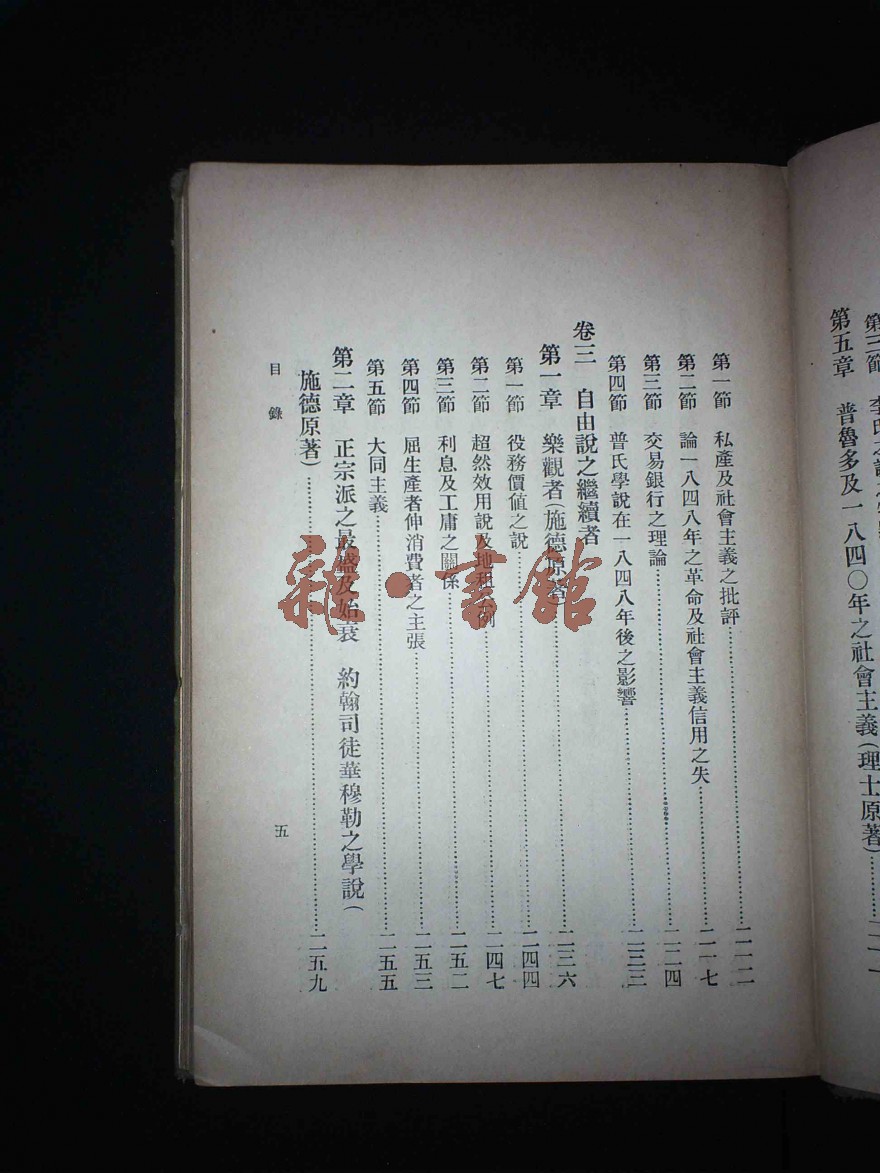 第五章　普魯多及一八四〇年之社會主義(理士原著)
第一節　私產及社會主義之批評……二一二
第二節　論一八四八年之革命及社會主義信用之失……二一七
第三節　交易銀行之理論……二二四
第四節　普氏學說在一八四八年後之影響……二三三
卷三　自由說之繼續者
第一章　樂觀者(施德原著)……二三六
第一節　役務價值之說……二四四
第二節　超然效用說及地租公例……二四七
第三節　利息及工庸之關係……二五二
第四節　屈生產者伸消費者之主張……二五三
第五節　大同主義……二五五
第二章　正宗派之最盛及始衰　約翰司徒華穆勒之學說(
施德原著)……二五九
目錄
五
雜·書館